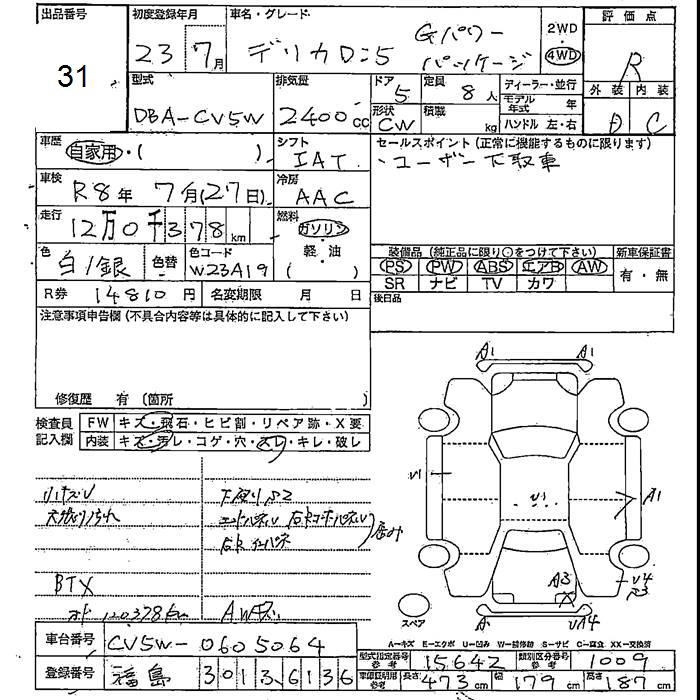 出品番号
31
初度登録年月
23 7月
車名・グレード
デリカD:5 Gパワー
パッケージ
2WD
4WD
評価点
R
外装 内装
D C
型式
DBA-CV5W
排気量
2400cc
ドア
5
形状
CW
定員
8人
積載
kg
ディーラー・並行
モデル年式 年
ハンドル 左・右
車歴
自家用・( )
シフト
IAT
セールスポイント(正常に機能するものに限ります)
ユーザー下取車
車検
R8年 7月(27日)
冷房
AAC
走行
12万0千378km
燃料
ガソリン
軽・油
( )
色
白/銀
色替
色コード
W23A19
装備品(純正品に限り○をつけて下さい)
新車保証書
PS PW ABS エアB AW
SR ナビ TV カワ
有・無
R券 14810円
名変期限 月 日
後日品
注意事項申告欄(不具合内容等は具体的に記入して下さい)
修復歴 有(箇所 )
検査員記入欄
FW キズ・飛石・ヒビ割・リペア跡・X要
内装 キズ・汚レ・コゲ・穴・スレ・キレ・破レ
BTX
120378km
AWキズ
A1 A1
U1
U1
A1
A3
X
U4
スペア
車台番号 CV5W-0605064
登録番号 福島 301 3 6136
A-キズ E-エクボ U-凹み W-修修跡 S-サビ C-腐食 XX-交換済
型式指定番号 参考 15642
類別区分番号 参考 1009
車庫証明用 参考 長さ 473cm 幅 179cm 高さ 187cm